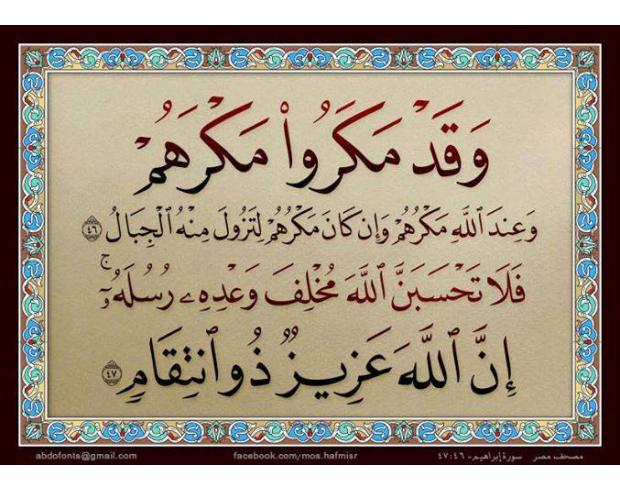 وَقَدْ مَكَرُوا۟ مَكْرَهُمْ
وَعِندَ ٱللَّهِ مَكْرُهُمْ وَإِن كَانَ مَكْرُهُمْ لِتَزُولَ مِنْهُ ٱلْجِبَالُ ٤٦
فَلَا تَحْسَبَنَّ ٱللَّهَ مُخْلِفَ وَعْدِهِۦ رُسُلَهُۥٓ ۚ
إِنَّ ٱللَّهَ عَزِيزٌ ذُو ٱنتِقَامٍ ٤٧
مصحف مصر سورة إبراهيم - ٤٧:٤٦
facebook.com/mos.hafmisr
abdofonts@gmail.com